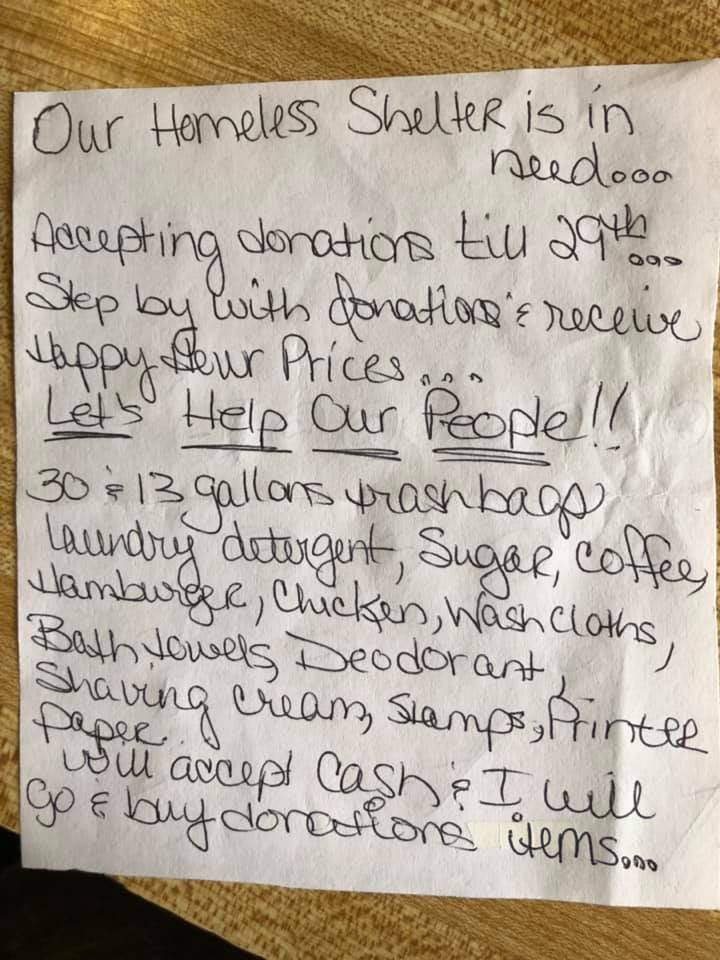 Our Homeless Shelter is in
need...
Accepting donations till 29th...
Step by with donations & receive
Happy Hour Prices...
Let's Help Our People!!
30 & 13 gallons trashbags
laundry detergent, Sugar, coffee,
Hamburger, Chicken, Wash cloths,
Bath towels, Deodorant,
Shaving cream, Stamps, Printer
paper.
will accept Cash & I will
go & buy donations items...